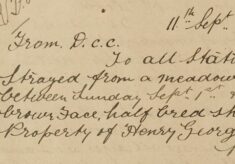 11th Sept
From D.C.C.
To all Stati
Strayed from a meadow
between Sunday Sept 1st &
brown face, half bred sh
Property of Henry Georg